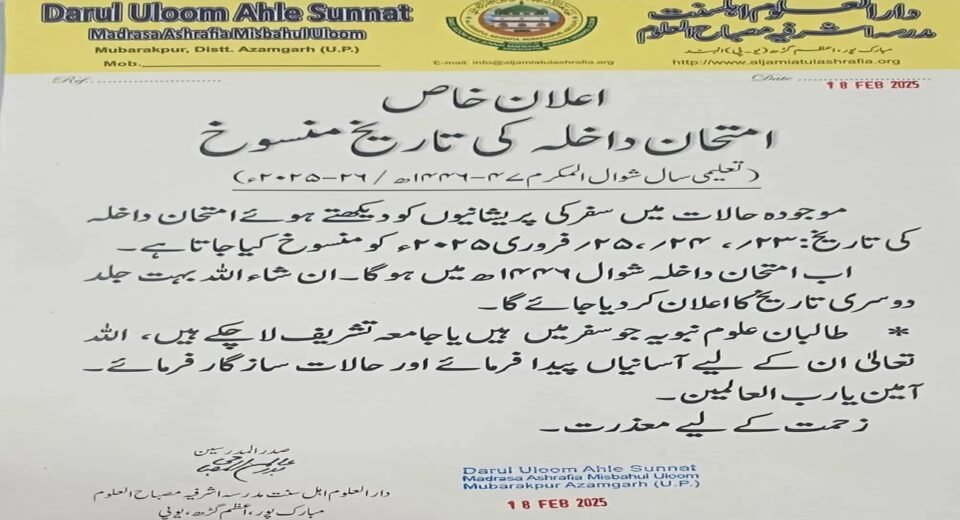 Darul Uloom Ahle Sunnat
Madrasa Ashrafia Misbahul Uloom
Mubarakpur, Distt. Azamgarh (U.P.)
Mob.
E-mail. info@aljamiatulashrafia.org
دارالعلوم اہلسنت
مدرسہ اشرفیہ مصباح العلوم
مبارک پور، اعظم گڑھ (یو پی) الہند
http://www.aljamiatulashrafia.org
Ref.
Date
18 FEB 2025
اعلان خاص
امتحان داخلہ کی تاریخ منسوخ
(تعلیمی سال شوال المکرم ۴۷-۱۴۴۶ھ / ۲۶-۲۰۲۵ء)
موجودہ حالات میں سفر کی پریشانیوں کو دیکھتے ہوئے امتحان داخلہ
کی تاریخ: ۲۳؍، ۲۴؍، ۲۵؍ فروری ۲۰۲۵ء کو منسوخ کیا جاتا ہے۔
اب امتحان داخلہ شوال ۱۴۴۶ھ میں ہوگا۔ ان شاء اللہ بہت جلد
دوسری تاریخ کا اعلان کر دیا جائے گا۔
* طالبان علوم نبویہ جو سفر میں ہیں یا جامعہ تشریف لا چکے ہیں، اللہ
تعالیٰ ان کے لیے آسانیاں پیدا فرمائے اور حالات ساز گار فرمائے۔
آمین یا رب العالمین۔
زحمت کے لیے معذرت۔
صدر المدرسین
دار العلوم اہل سنت مدرسہ اشرفیہ مصباح العلوم
مبارک پور، اعظم گڑھ، یوپی
Darul Uloom Ahle Sunnat
Madrasa Ashrafia Misbahul Uloom
Mubarakpur Azamgarh (U.P.)
18 FEB 2025